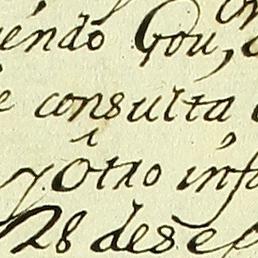 endo Gou,
e consulta
y Otro inf
28 de se